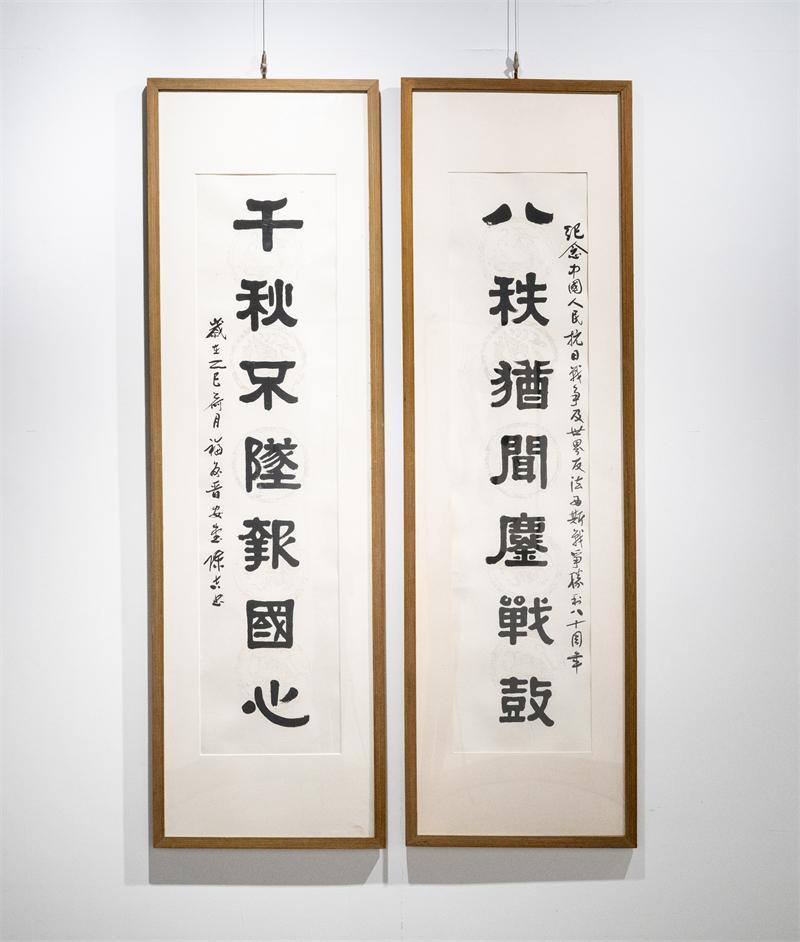 紀念中國人民抗日戰争及世界反法西斯戰爭勝利八十周年
八秩猶聞鏖戰鼓
千秋不墜報國心
歲在乙巳荷月